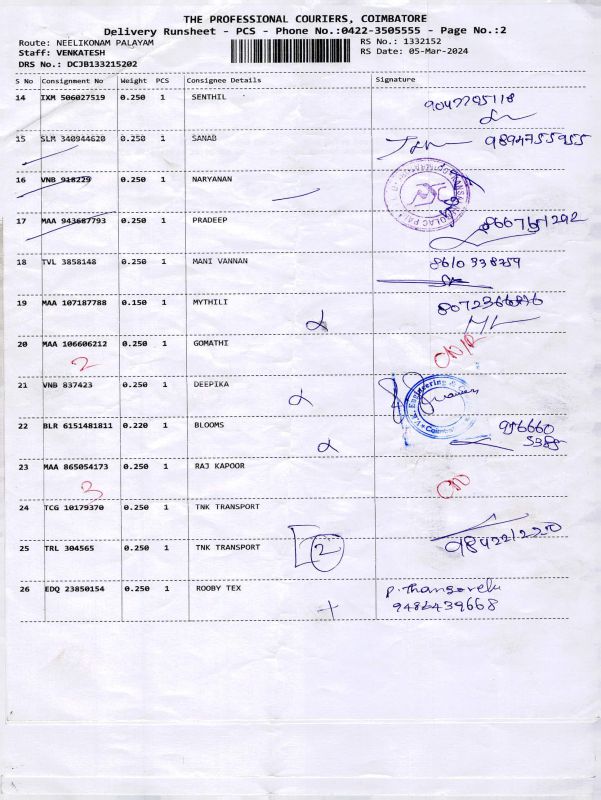 THE PROFESSIONAL COURIERS, COIMBATORE
Delivery Runsheet - PCS - Phone No.:0422-3505555 - Page No.:2
Route: NEELIKONAM PALAYAM RS No.: 1332152
Staff: VENKATESH RS Date: 05-Mar-2024
DRS No.: DCJB133215202
S No Consignment No Weight PCS Consignee Details Signature
14 IXM 506027519 0.250 1 SENTHIL
15 SLM 340944620 0.250 1 SANAB 9894755955
16 VNB 918229 0.250 1 NARYANAN
17 MAA 943687793 0.250 1 PRADEEP
18 TVL 3858148 0.250 1 MANI VANNAN 8610 938759
19 MAA 107187788 0.150 1 MYTHILI
20 MAA 106606212 0.250 1 GOMATHI
2
21 VNB 837423 0.250 1 DEEPIKA
22 BLR 6151481811 0.220 1 BLOOMS
23 MAA 865054173 0.250 1 RAJ KAPOOR
3
24 TCG 10179370 0.250 1 TNK TRANSPORT
25 TRL 304565 0.250 1 TNK TRANSPORT 2 9842212220
26 EDQ 23850154 0.250 1 ROOBY TEX P. Thangavelu
9486439668